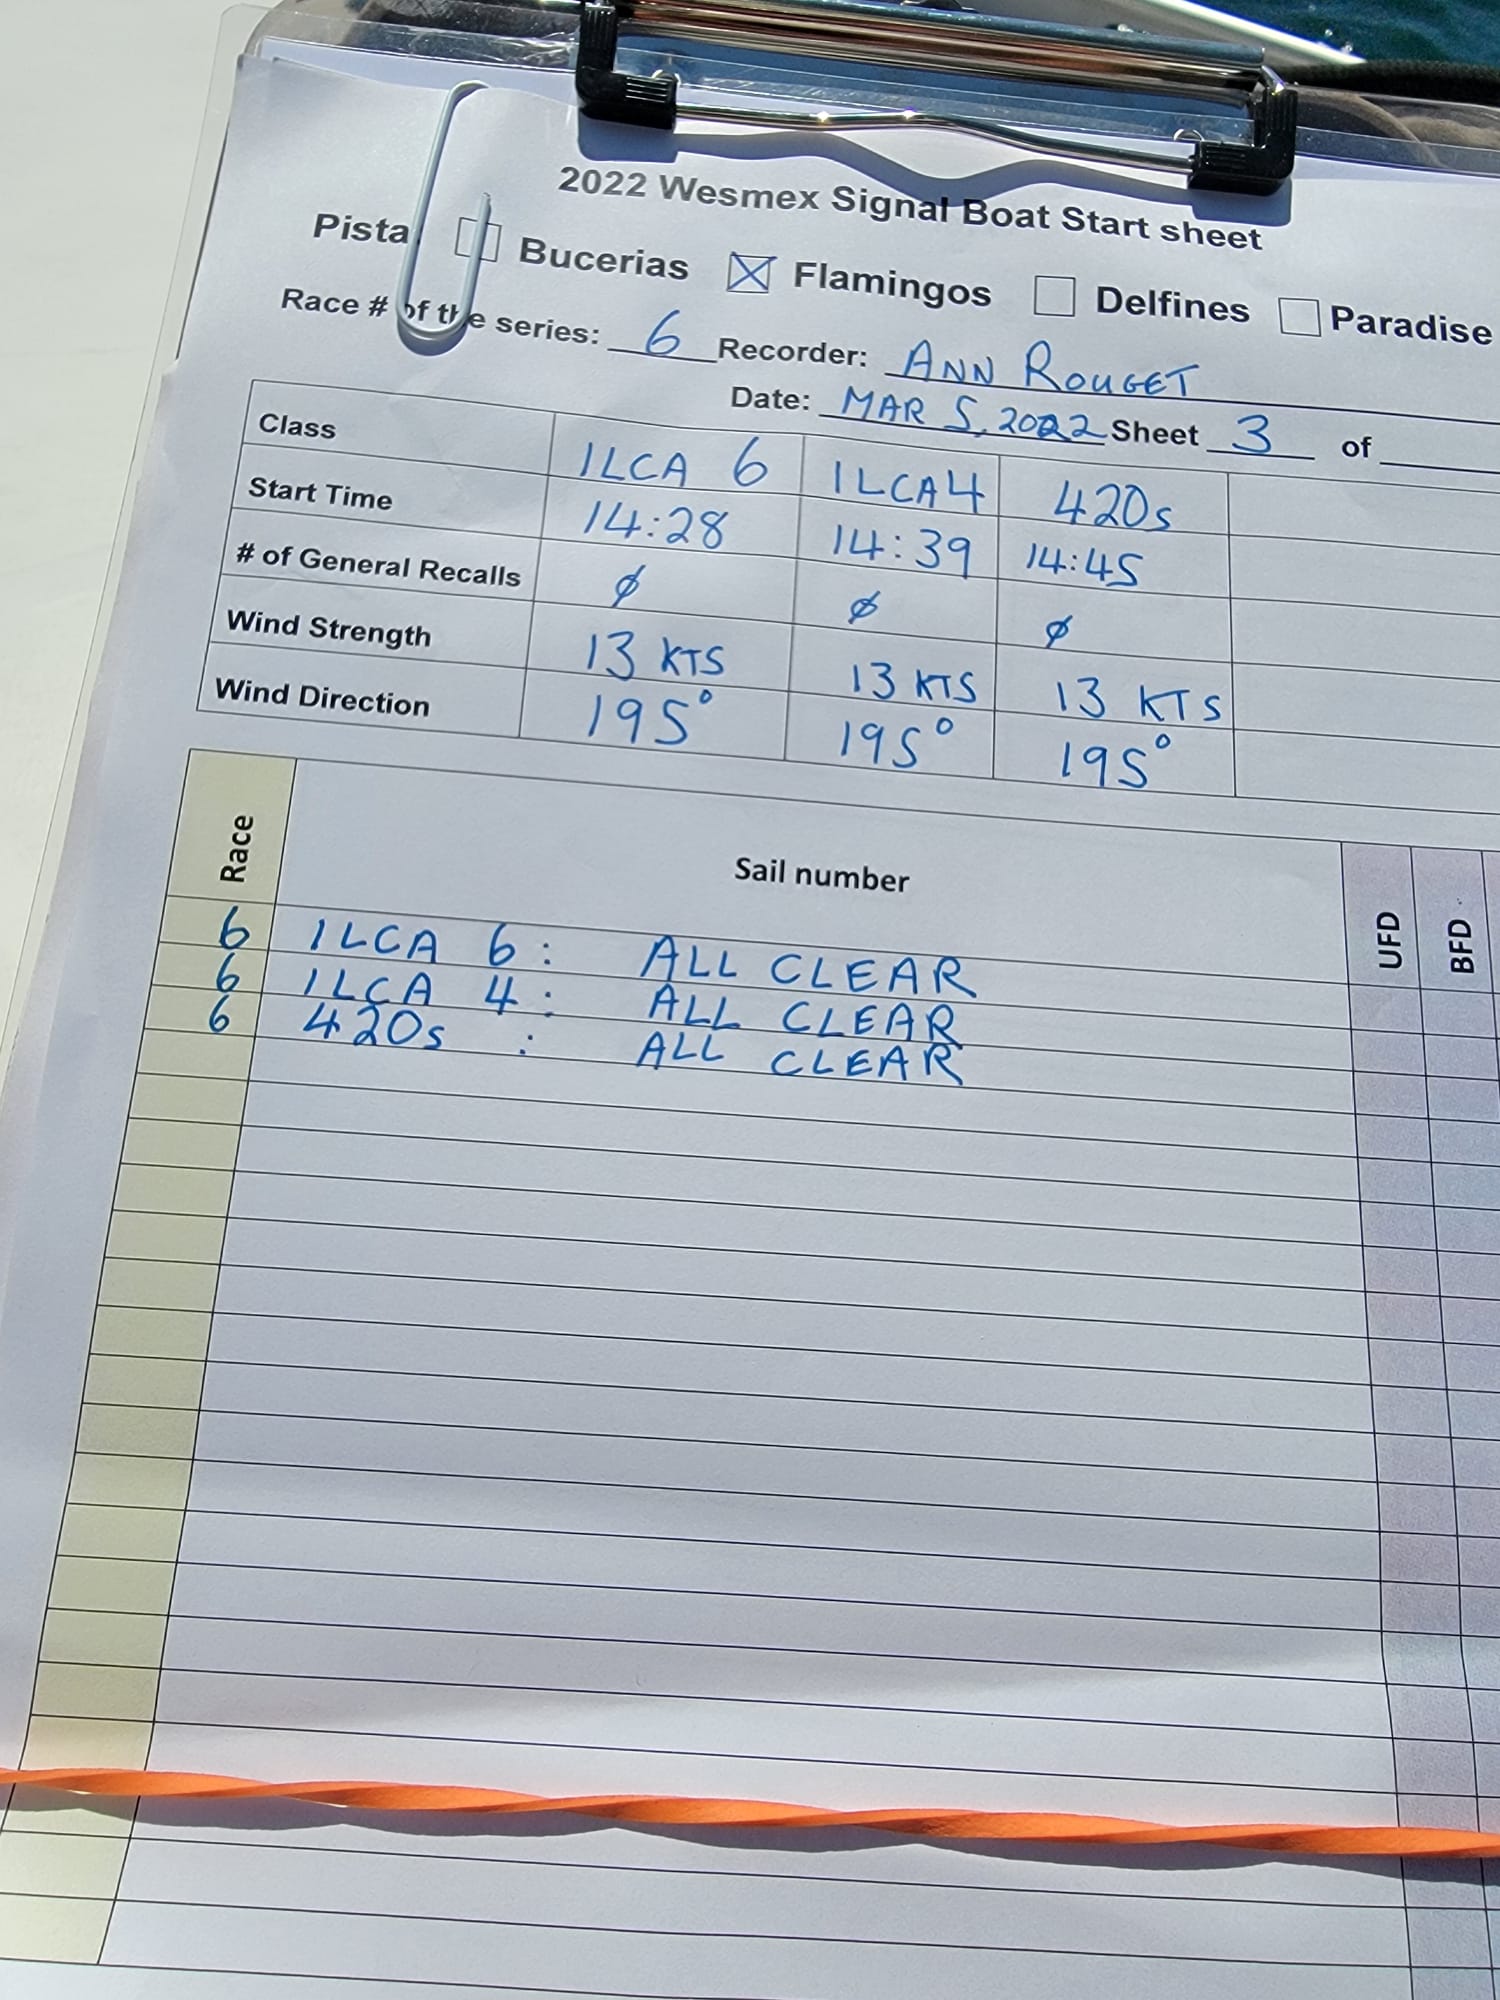 2022 Wesmex Signal Boat Start sheet
Pista ☐ Bucerias ☒ Flamingos ☐ Delfines ☐ Paradise
Race # of the series: 6 Recorder: ANN ROUGET
Date: MAR 5, 2022 Sheet 3 of
Class ILCA 6 ILCA 4 420s
Start Time 14:28 14:39 14:45
# of General Recalls ∅ ∅ ∅
Wind Strength 13 KTS 13 KTS 13 KTS
Wind Direction 195° 195° 195°
Race Sail number UFD BFD
6 ILCA 6: ALL CLEAR
6 ILCA 4: ALL CLEAR
6 420s : ALL CLEAR